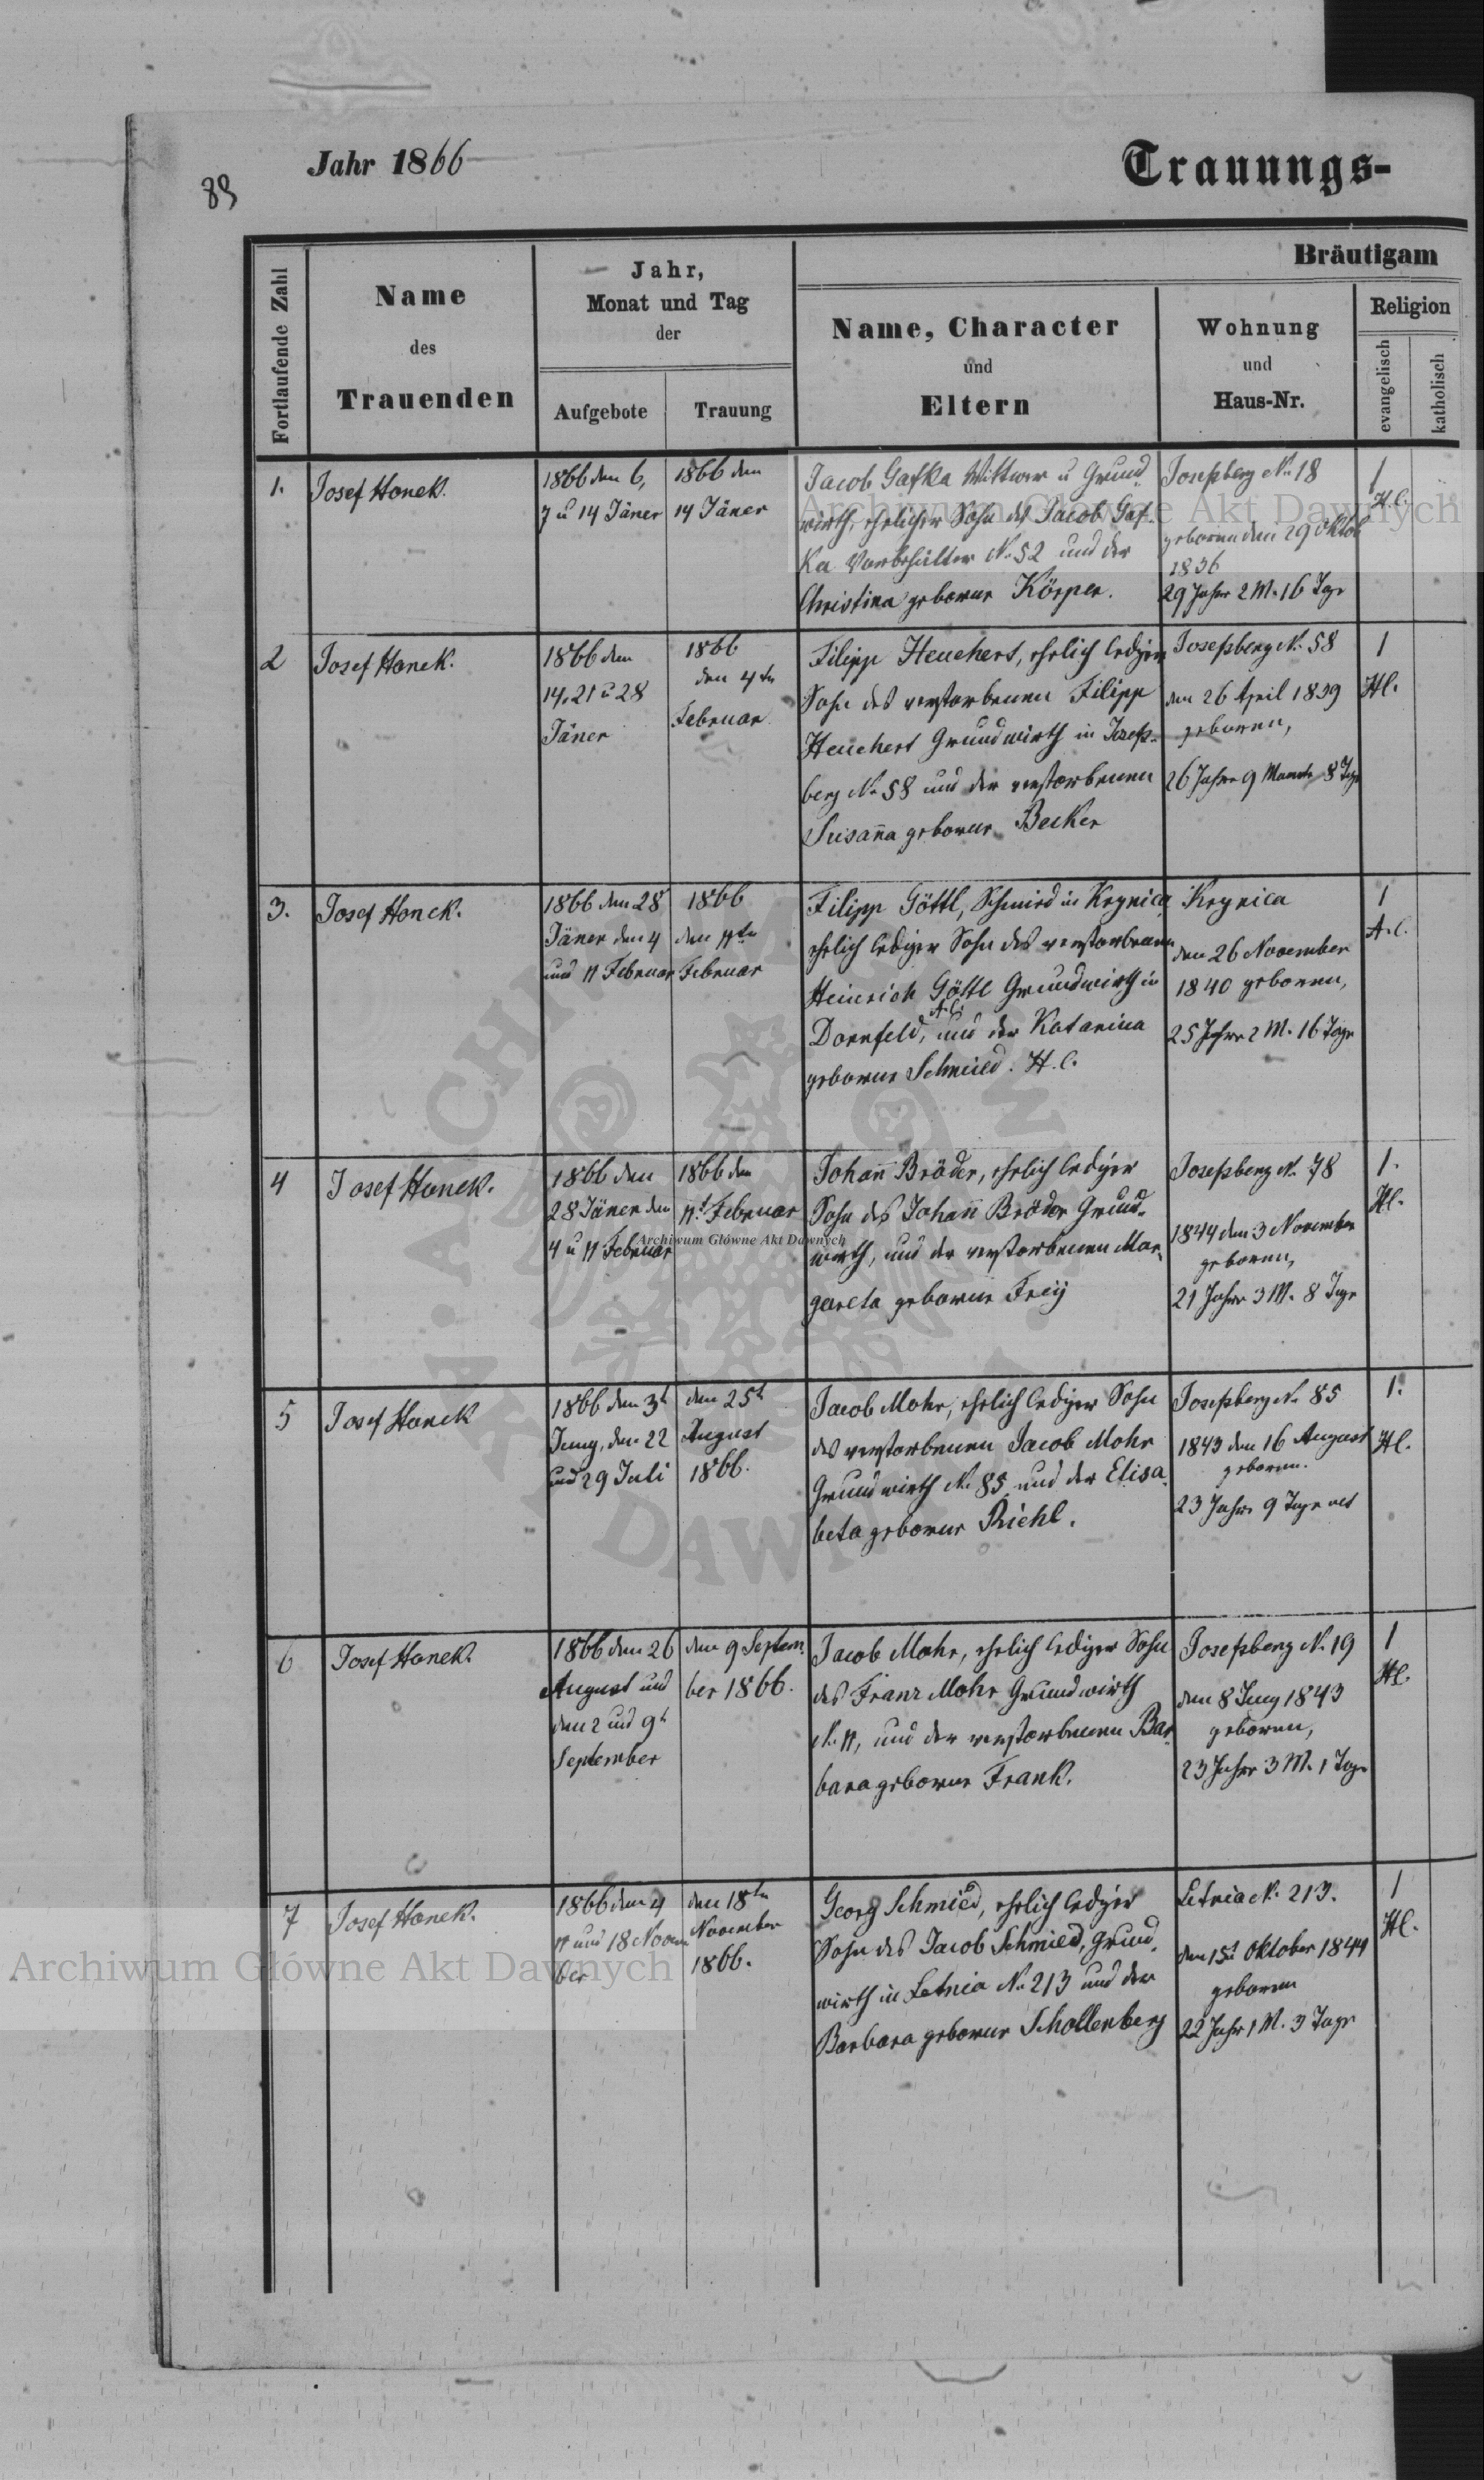 Jahr 1866
Trauungs-
89
Fortlaufende Zahl
Name
des
Trauenden
Jahr,
Monat und Tag
der
Aufgebote
Trauung
Bräutigam
Name, Character
und
Eltern
Wohnung
und
Haus-Nr.
Religion
evangelisch
katholisch
1.
Josef Honek.
1866 den 6,
7 u 14 Jäner
1866 den
14 Jäner
Jacob Gafka Wittwer u Grund
wirth, ehelicher Sohn des Jacob Gaf-
ka Vorbehälter N. 52 und der
Christina geborne Körper.
Josefsberg N. 18
geboren den 29 Oktob
1836
29 Jahre 2 M. 16 Tage
1
H.C.
2
Josef Honek.
1866 den
14. 21 u 28
Jäner
1866
den 4ten
Februar
Filipp Heuchert, ehelich lediger
Sohn des verstorbenen Filipp
Heuchert Grundwirth in Josefs-
berg N. 58 und der verstorbenen
Susanna geborne Becker
Josefsberg N. 58
den 26 April 1839
geboren,
26 Jahre 9 Monate 8 Tage
1
HC.
3.
Josef Honek.
1866 den 28
Jäner den 4
und 11 Februar
1866
den 11ten
Februar
Filipp Göttl, Schmied in Krynica
ehelich lediger Sohn des verstorbenen
Heinrich Göttl Grundwirth in
A.C.
Dornfeld, und der Katarina
geborne Schmied. H.C.
Krynica
den 26 November
1840 geboren,
25 Jahre 2 M. 16 Tage
1
A.C.
4
Josef Honek.
1866 den
28 Jäner den
4 u 11 Februar
1866 den
11t Februar
Johann Bräder, ehelich lediger
Sohn des Johann Bröder Grund-
wirth, und der verstorbenen Mar-
gareta geborne Frey
Josefsberg N. 78
1844 den 3 November
geboren,
21 Jahre 3 M. 8 Tage
1.
HC.
5
Josef Honek
1866 den 3t
Juny, den 22
und 29 Juli
den 25t
August
1866.
Jacob Mohr, ehelich lediger Sohn
des verstorbenen Jacob Mohr
Grundwirth N. 85 und der Elisa-
beta geborne Riehl.
Josefsberg N. 85
1843 den 16 August
geboren.
23 Jahre 9 Tage alt
1.
HC.
6
Josef Honek.
1866 den 26
August und
den 2 und 9t
September
den 9 Septem-
ber 1866.
Jacob Mohr, ehelich lediger Sohn
des Franz Mohr Grundwirth
N. 11, und der verstorbenen Bar-
bara geborne Frank.
Josefsberg N. 19
den 8 Juny 1843
geboren,
23 Jahre 3 M. 1 Tage
1
HC.
7
Josef Honek.
1866 den 4
11 und 18 Novem
ber
den 18ten
November
1866.
Georg Schmied, ehelich lediger
Sohn des Jacob Schmied, Grund-
wirth in Letnia N. 213 und der
Barbara geborne Schollenberg
Letnia N. 213.
den 15t Oktober 1844
geboren
22 Jahr 1 M. 3 Tage
1
HC.
Archiwum Główne Akt Dawnych
Archiwum Główne Akt Dawnych
Archiwum Główne Akt Dawnych